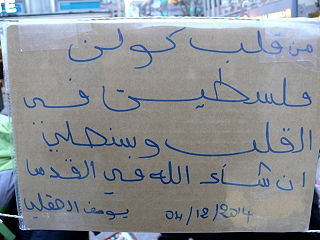 من قلب كولن
فلسطين في
القلب وسنصلي
ان شاء الله في القدس
يوسف 04/12/2014